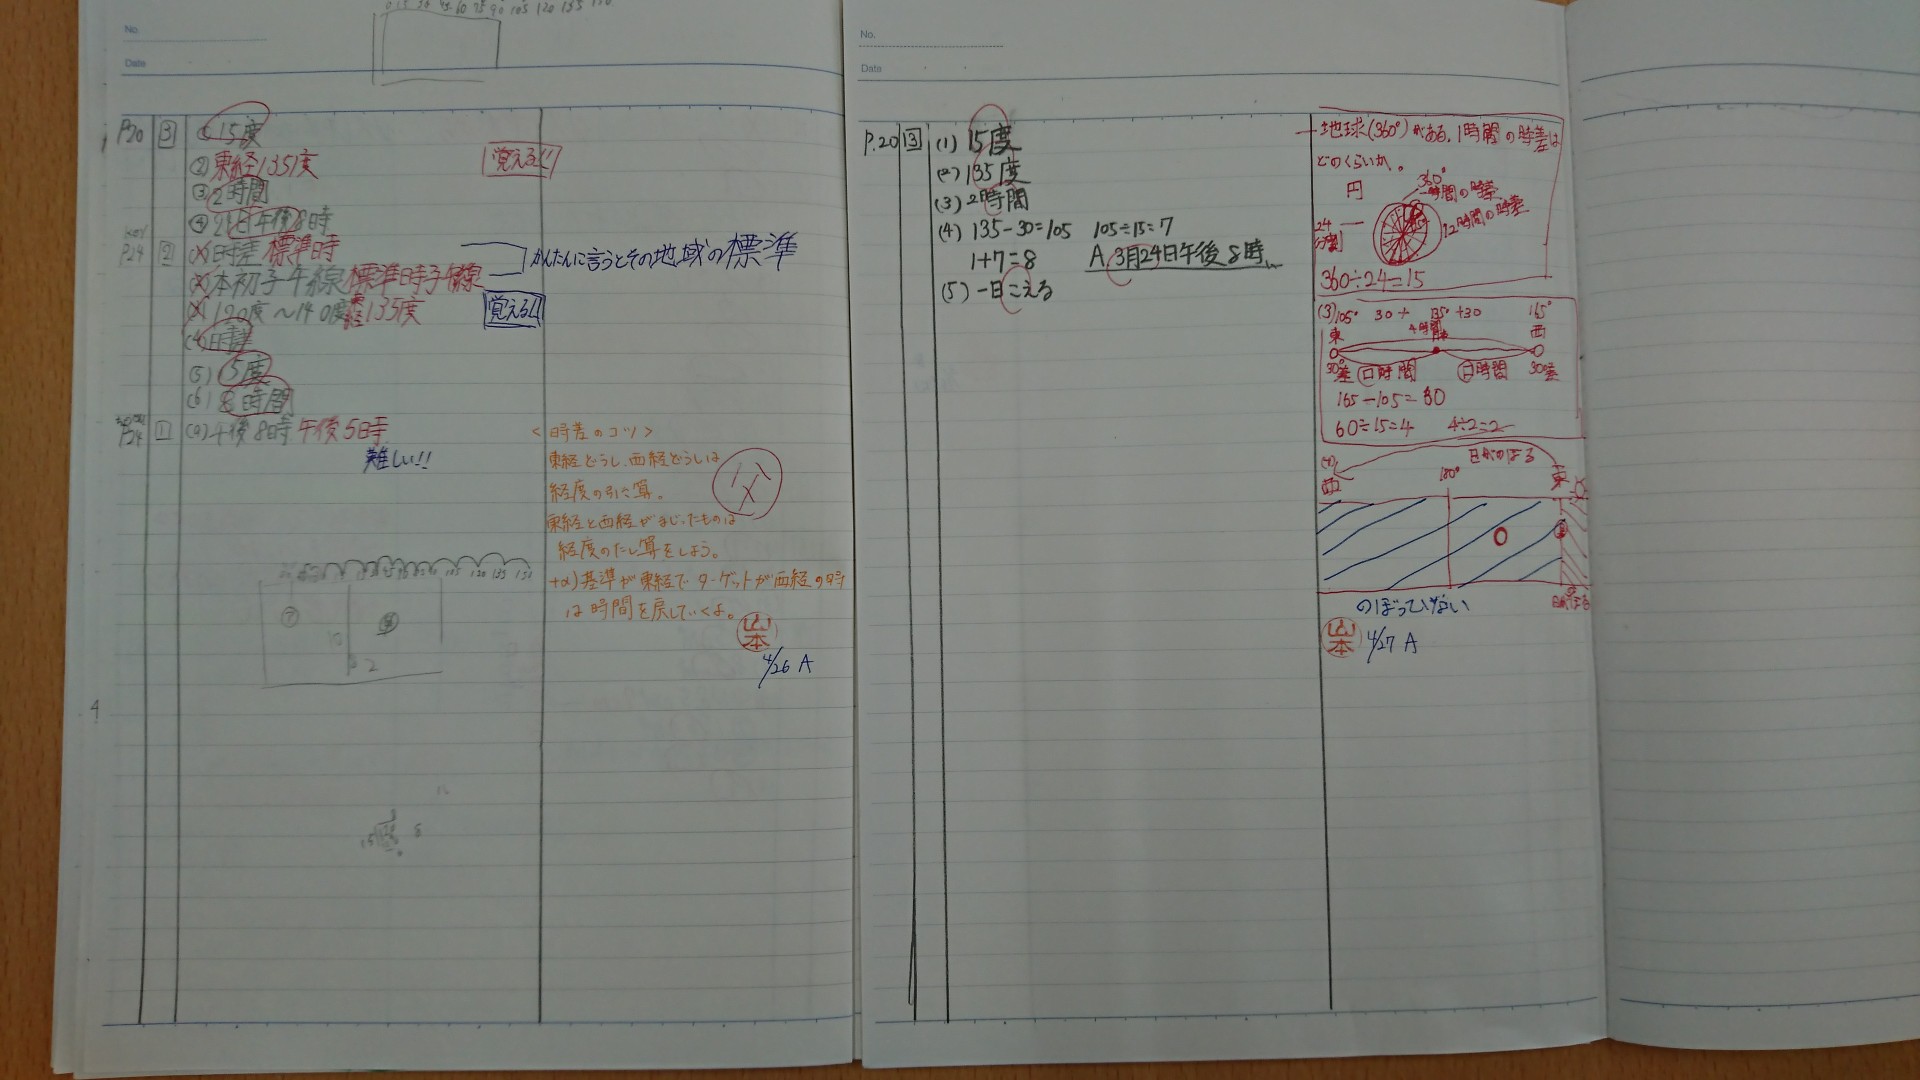 No.
Date
P.20 3 (1) 15度
(2) 東経135度 覚える!!
(3) 2時間
(4) 24日午後8時
P.24 2 (1) 時差 標準時
(2) 本初子午線 標準時子午線
かんたんに言うとその地域の標準
(3) 120度〜140度 東経135度 覚える!!
(4) 時差
(5) 15度
(6) 8時間
P.24 1 (2) 午後8時 午後5時
難しい!!
<時差のコツ>
東経どうし、西経どうしは
経度の引き算。
東経と西経がまじったものは
経度のたし算をしよう。
+α)基準が東経でターゲットが西経の時
は時間を戻していくよ。
山本
4/26 A
4
No.
Date
P.20 3 (1) 15度
(2) 135度
(3) 2時間
(4) 135-30=105 105÷15=7
1+7=8 A.3月24日午後8時
(5) 一日こえる
地球(360°)がある。1時間の時差は
どのくらいか。
円
360°
一時間の時差
24分割
12時間の時差
360÷24=15
(3) 105° 30+ 135° +30 165°
東 4時間 西
30°差 口時間 口時間 30°差
165-105=60
60÷15=4 4÷2=2
(4) 日がのぼる
西 180° 東
のぼっていない
山本
4/27 A